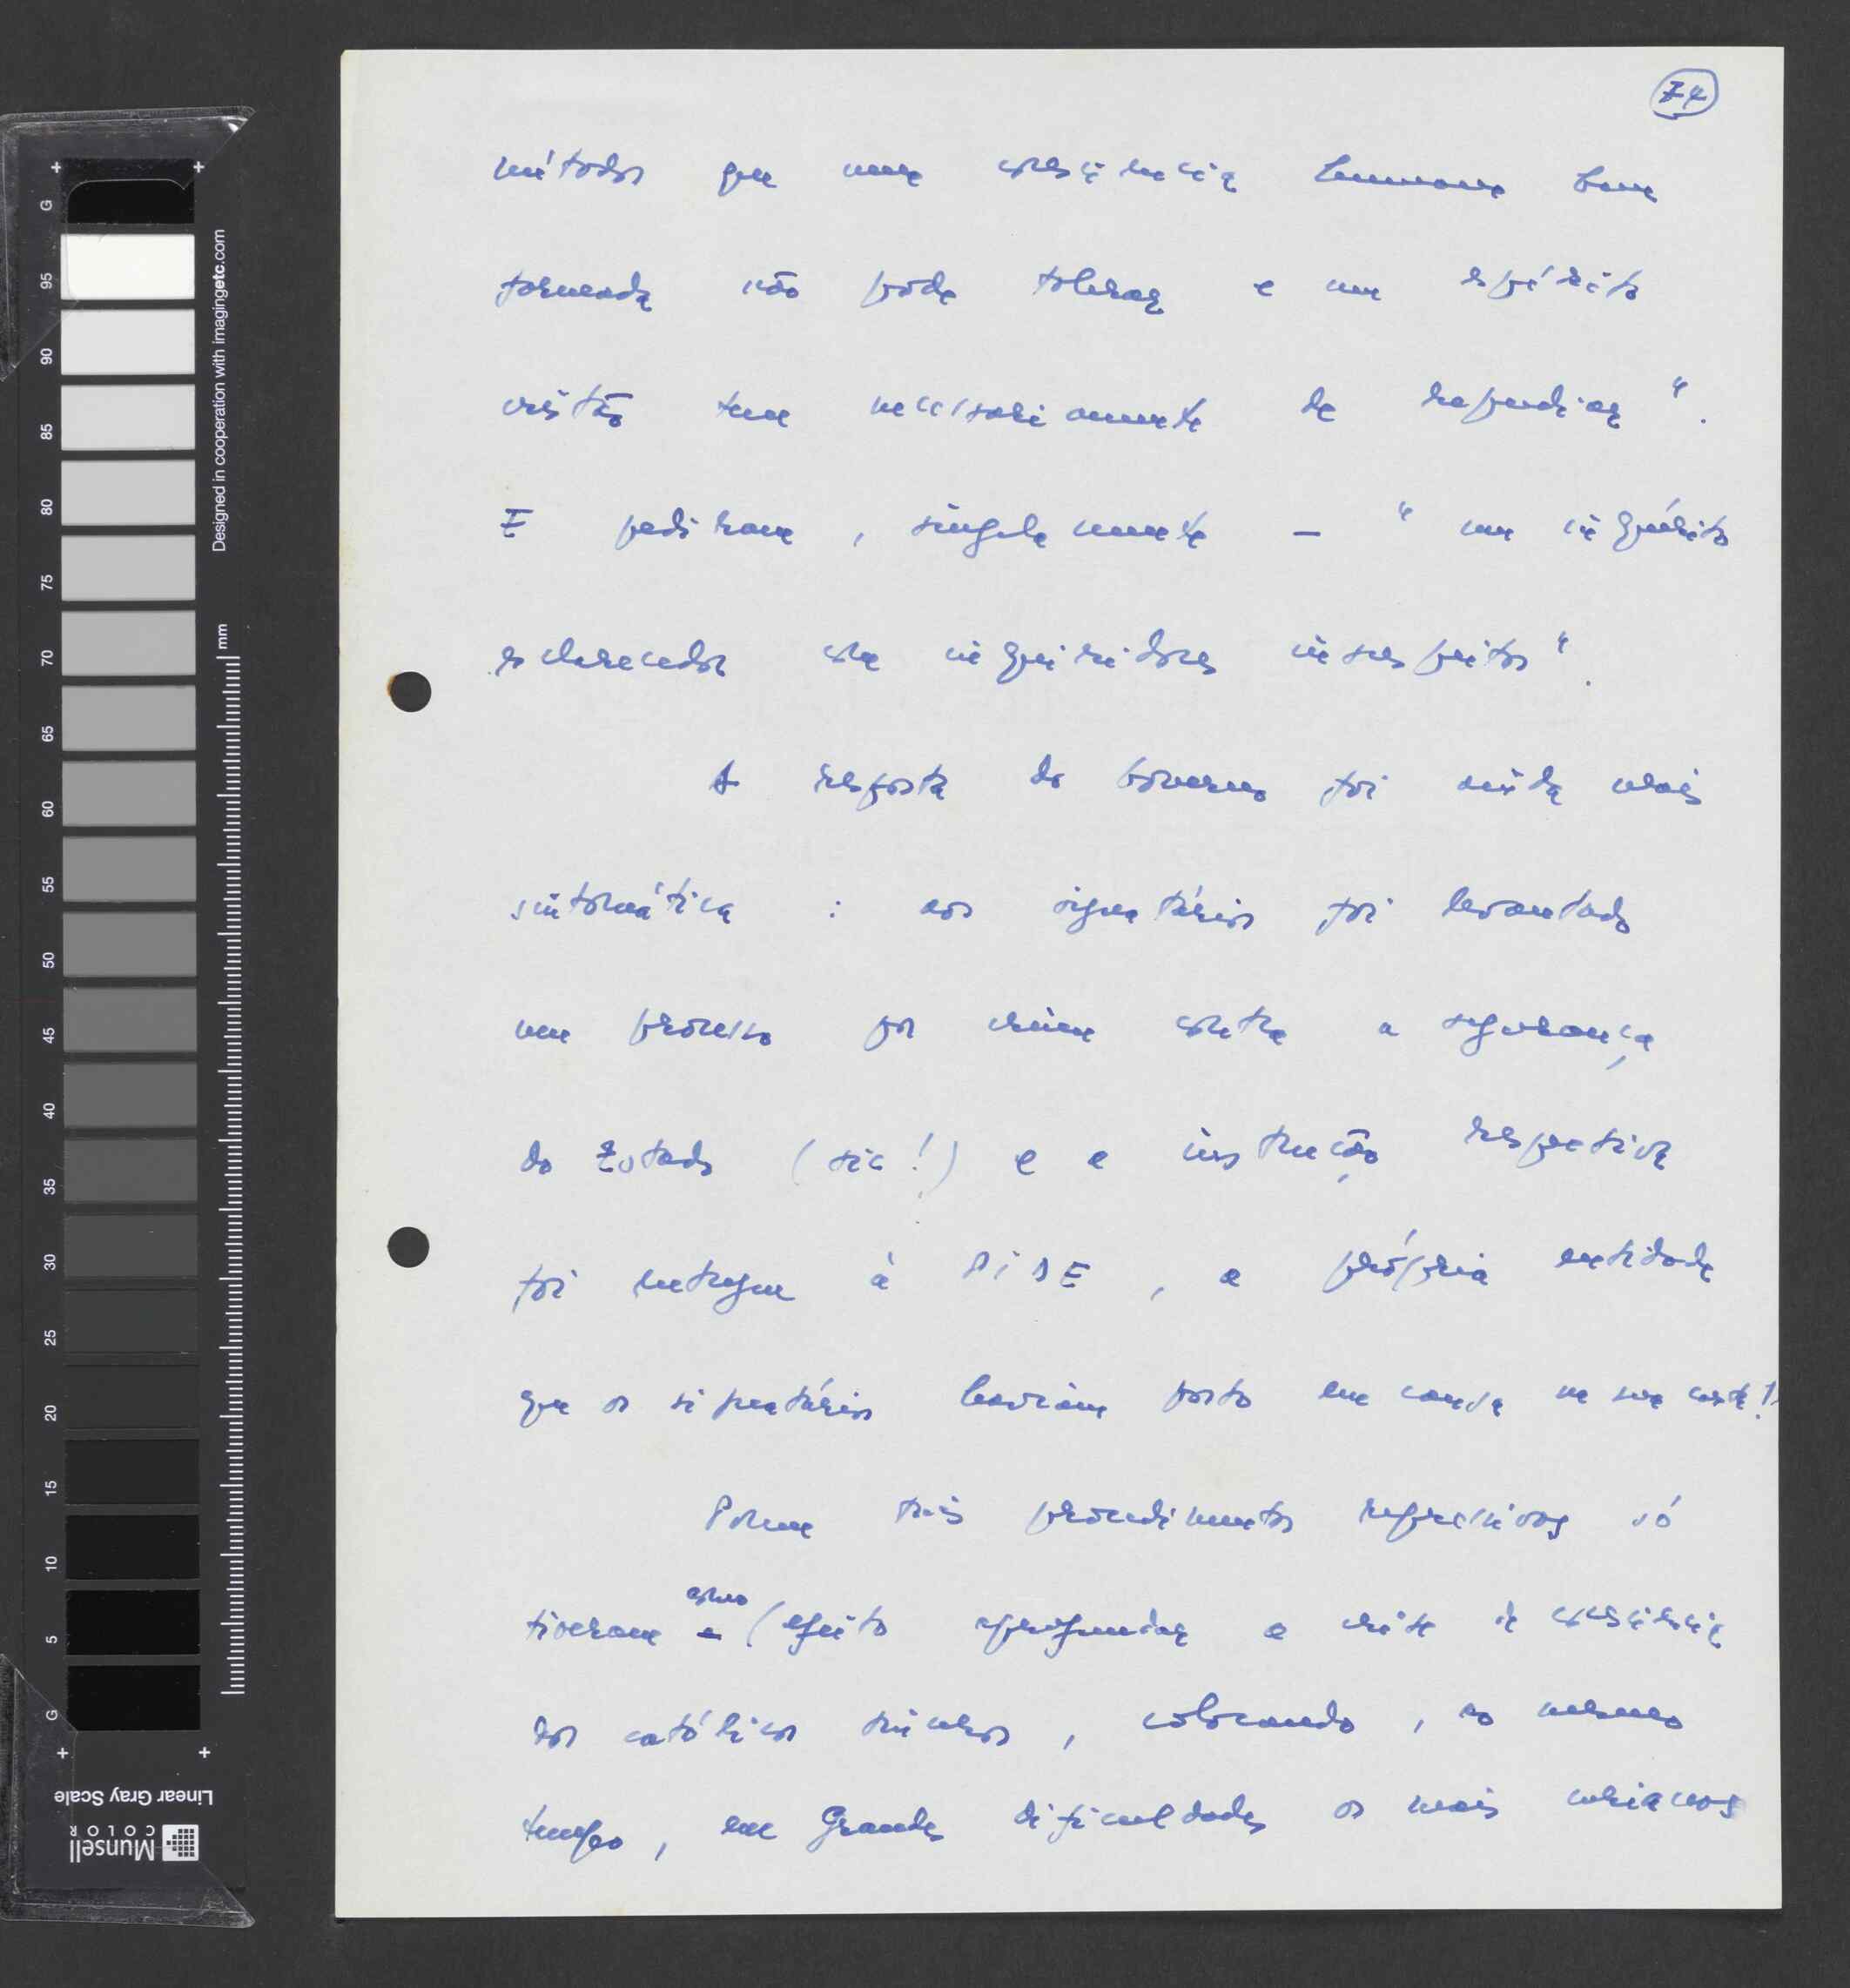 74
métodos que uma consciência humana bem
formada não pode tolerar e um espírito
cristão tem necessariamente de repudiar".
E pediram, singelamente — "um inquérito
esclarecedor com inquiridores insuspeitos".
A resposta do Governo foi ainda mais
sintomática : aos signatários foi levantado
um processo por crime contra a segurança
do Estado (sic!) e a instrução respectiva
foi entregue à PIDE, a própria entidade
que os signatários haviam posto em causa na sua carta!
Porém tais procedimentos repressivos só
tiveram como efeito aprofundar a crise de consciência
dos católicos sinceros, colocando, ao mesmo
tempo, em Grandes dificuldades os mais
G 95 90 85 80 75 70 65 60 55 50 45 40 35 30 25 20 15 10 5 G
Designed in cooperation with imagingetc.com
mm
Linear Gray Scale
Munsell
COLOR